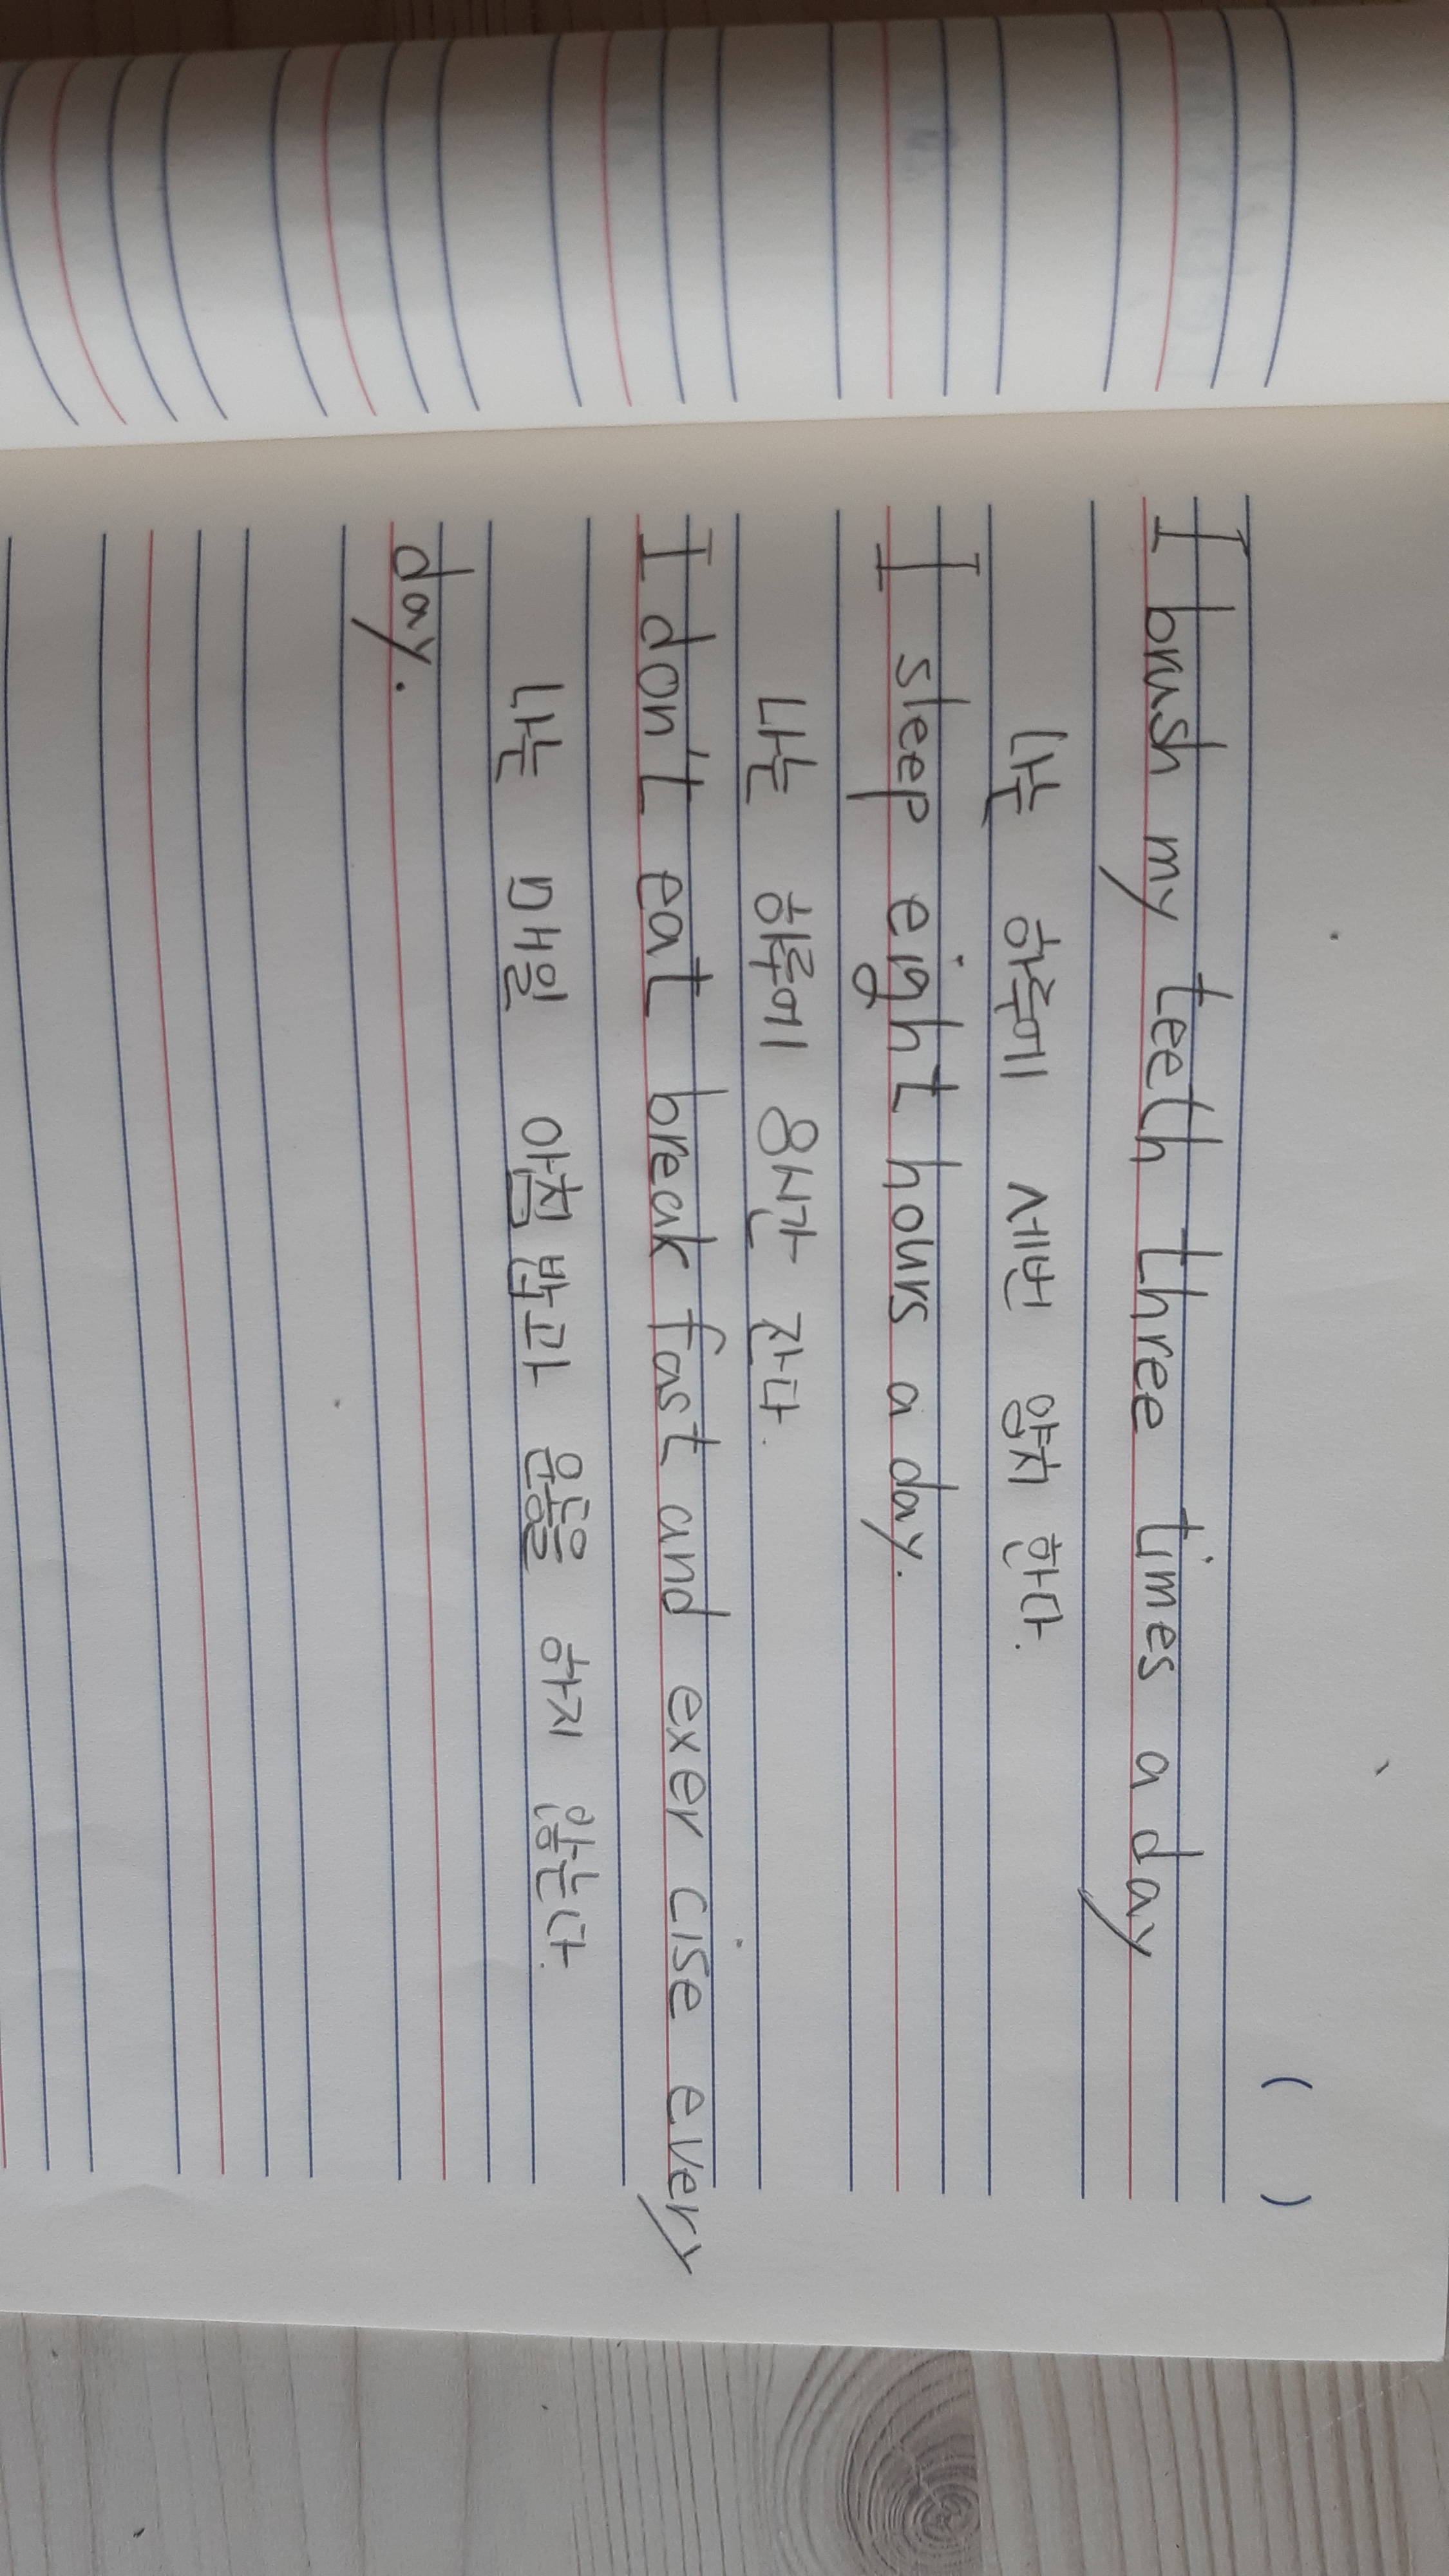 (        )
I brush my teeth three times a day
나는 하루에 세번 양치 한다.
I sleep eight hours a day.
나는 하루에 8시간 잔다.
I don't eat break fast and exer cise every
나는 매일 아침 밥과 운동을 하지 않는다.
day.